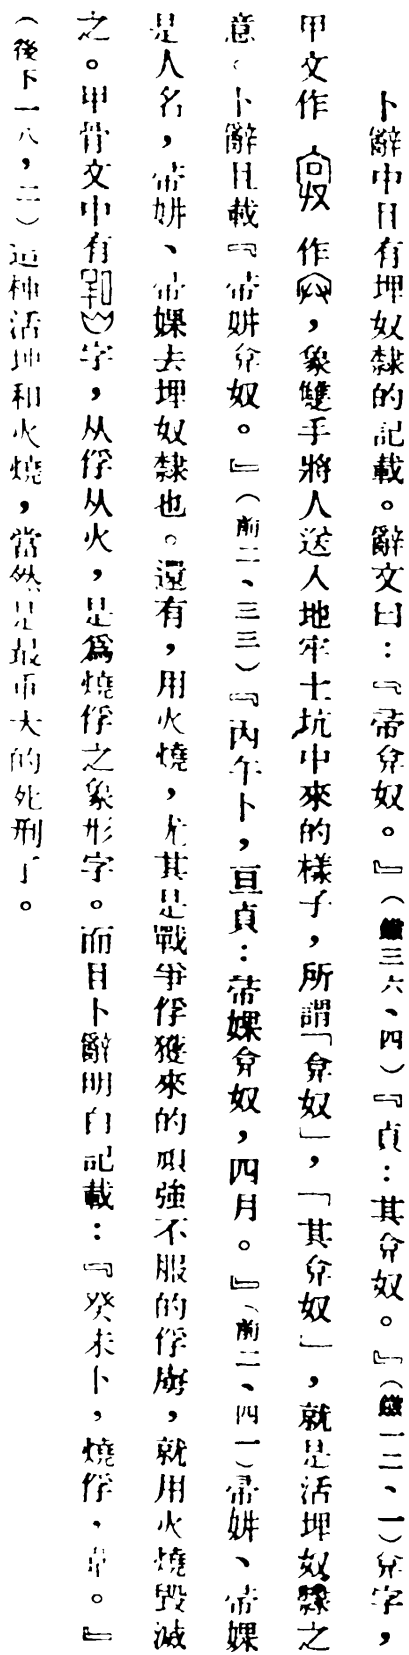 卜辭中且有埋奴隸的記載。辭文曰:『帚弇奴。』(鐵三六、四)『貞:其弇奴。』(鐵一二、一)弇字,
甲文作 作 ,象雙手將人送入地牢土坑中來的樣子,所謂「弇奴」,「其弇奴」,就是活埋奴隸之
意。卜辭且載『帚妌弇奴。』(前二、三三)『丙午卜,亘貞:帚婐弇奴,四月。』(前二、四一)帚妌、帚婐
是人名,帚妌、帚婐去埋奴隸也。還有,用火燒,尤其是戰爭俘獲來的頑強不服的俘虜,就用火燒毀滅
之。甲骨文中有 字,从俘从火,是爲燒俘之象形字。而且卜辭明白記載:『癸未卜,燒俘, 。』
(後下一八,二)這種活埋和火燒,當然是最重大的死刑了。